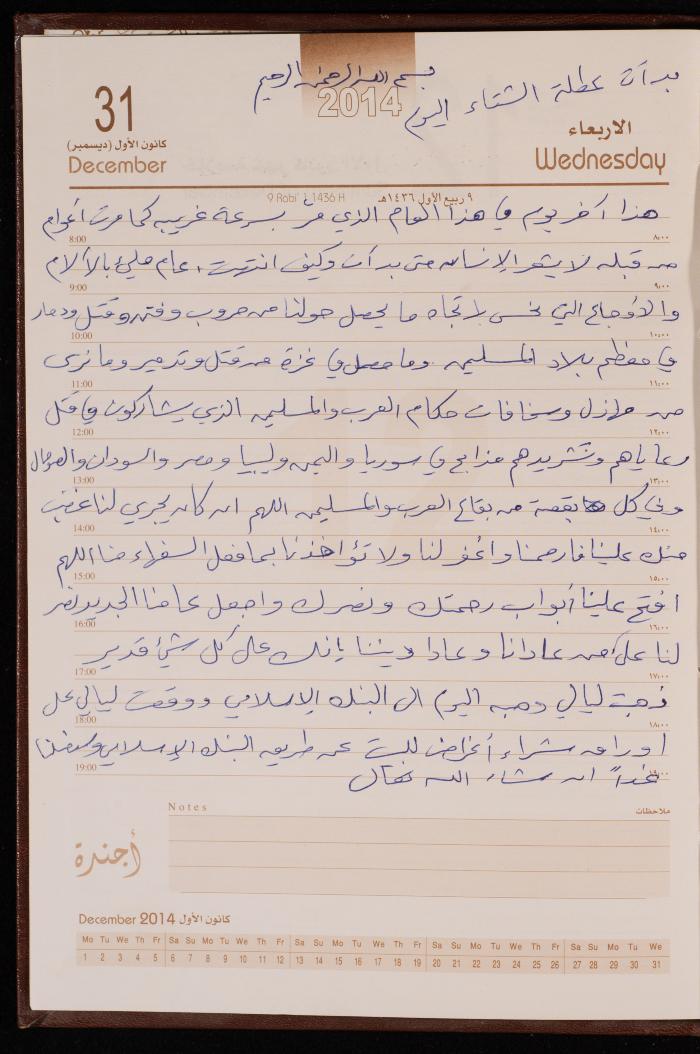 بدأت عطلة الشتاء اليوم
بسم الله الرحمن الرحيم
2014
31
كانون الأول (ديسمبر)
December
الاربعاء
Wednesday
9 Robi' 1 1436 H
٩ ربيع الأول ١٤٣٦هـ
هذا آخر يوم في هذا العام الذي مر بسرعة غريبه كما مرت أعوام
8:00 ٨:٠٠
من قبله لا يشعر الإنسان متى بدأت وكيف انتهت، عام مليئ بالآلام
9:00 ٩:٠٠
والأوجاع التي نحس باتجاه ما يحصل حولنا من حروب وفتن وقتل ودمار
10:00 ١٠:٠٠
في معظم بلاد المسلمين وما حصل في غزة من قتل وتدمير وما نرى
11:00 ١١:٠٠
من مهازل وسخافات حكام العرب والمسلمين الذي يشاركون في قتل
12:00 ١٢:٠٠
رعاياهم وتشريدهم مذابح في سوريا واليمن وليبيا ومصر والسودان والصومال
13:00 ١٣:٠٠
وفي كل بقعة من بقاع العرب والمسلمين اللهم ان كان يجري لنا غضب
14:00 ١٤:٠٠
منك علينا فارحمنا واغفر لنا ولا تؤاخذنا بما فعل السفهاء منا اللهم
15:00 ١٥:٠٠
افتح علينا أبواب رحمتك ونصرك واجعل عامنا الجديد نصر
16:00 ١٦:٠٠
لنا على من عادانا وعادا ديننا إنك على كل شيئ قدير
17:00 ١٧:٠٠
ذهبت ليالي وهبه اليوم الى البنك الإسلامي ووقعت ليالي على
18:00 ١٨:٠٠
اوراق شراء أغراض للبيت عن طريق البنك الإسلامي
19:00
غداً ان شاء الله تعالى
Notes ملاحظات
أجندة
December 2014 كانون الأول
Mo Tu We Th Fr Sa Su Mo Tu We Th Fr Sa Su Mo Tu We Th Fr Sa Su Mo Tu We Th Fr Sa Su Mo Tu We
1 2 3 4 5 6 7 8 9 10 11 12 13 14 15 16 17 18 19 20 21 22 23 24 25 26 27 28 29 30 31